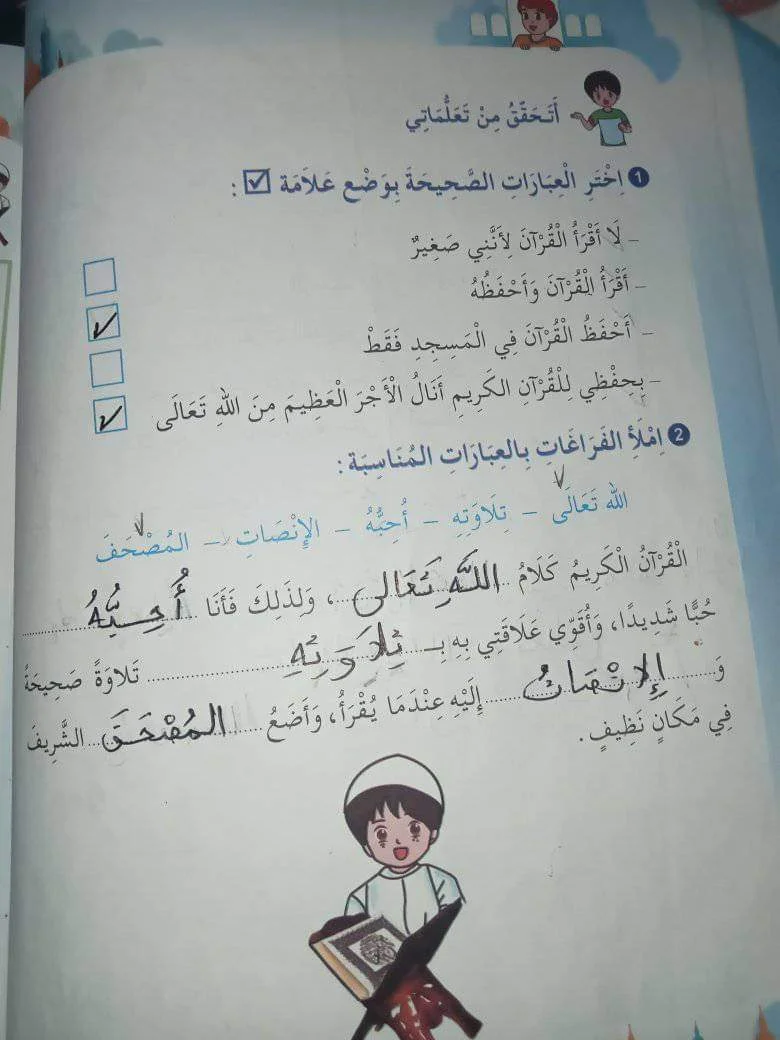 أَتَحَقَّقُ مِنْ تَعَلُّمَاتِي
1 اِخْتَرِ الْعِبَارَاتِ الصَّحِيحَةَ بِوَضْعِ عَلَامَة ☑ :
– لَا أَقْرَأُ الْقُرْآنَ لِأَنَّنِي صَغِيرٌ
– أَقْرَأُ الْقُرْآنَ وَأَحْفَظُهُ
– أَحْفَظُ الْقُرْآنَ فِي الْمَسِجِدِ فَقَطْ
– بِحِفْظِي لِلْقُرْآنِ الكَرِيمِ أَنَالُ الْأَجْرَ الْعَظِيمَ مِنَ اللهِ تَعَالَى
2 اِمْلَأِ الفَرَاغَاتِ بِالعِبَارَاتِ المُنَاسِبَة :
الله تَعَالَى – تِلَاوَتِهِ – أُحِبُّهُ – الإِنْصَاتِ – المُصْحَفَ
الْقُرْآنُ الْكَرِيمُ كَلَامُ اللَّهِ تَعَالى ، وَلِذَلِكَ فَأَنَا أُحِبُّهُ
حُبًّا شَدِيدًا، وَأُقَوِّي عَلَاقَتِي بِهِ بِـ تِلَاوَتِهِ تَلاوَةً صَحِيحَةً
وَ الإِنْصَاتُ إِلَيْهِ عِنْدَمَا يُقْرَأُ، وَأَضَعُ المُصْحَفَ الشَّرِيفَ
فِي مَكَانٍ نَظِيفٍ.